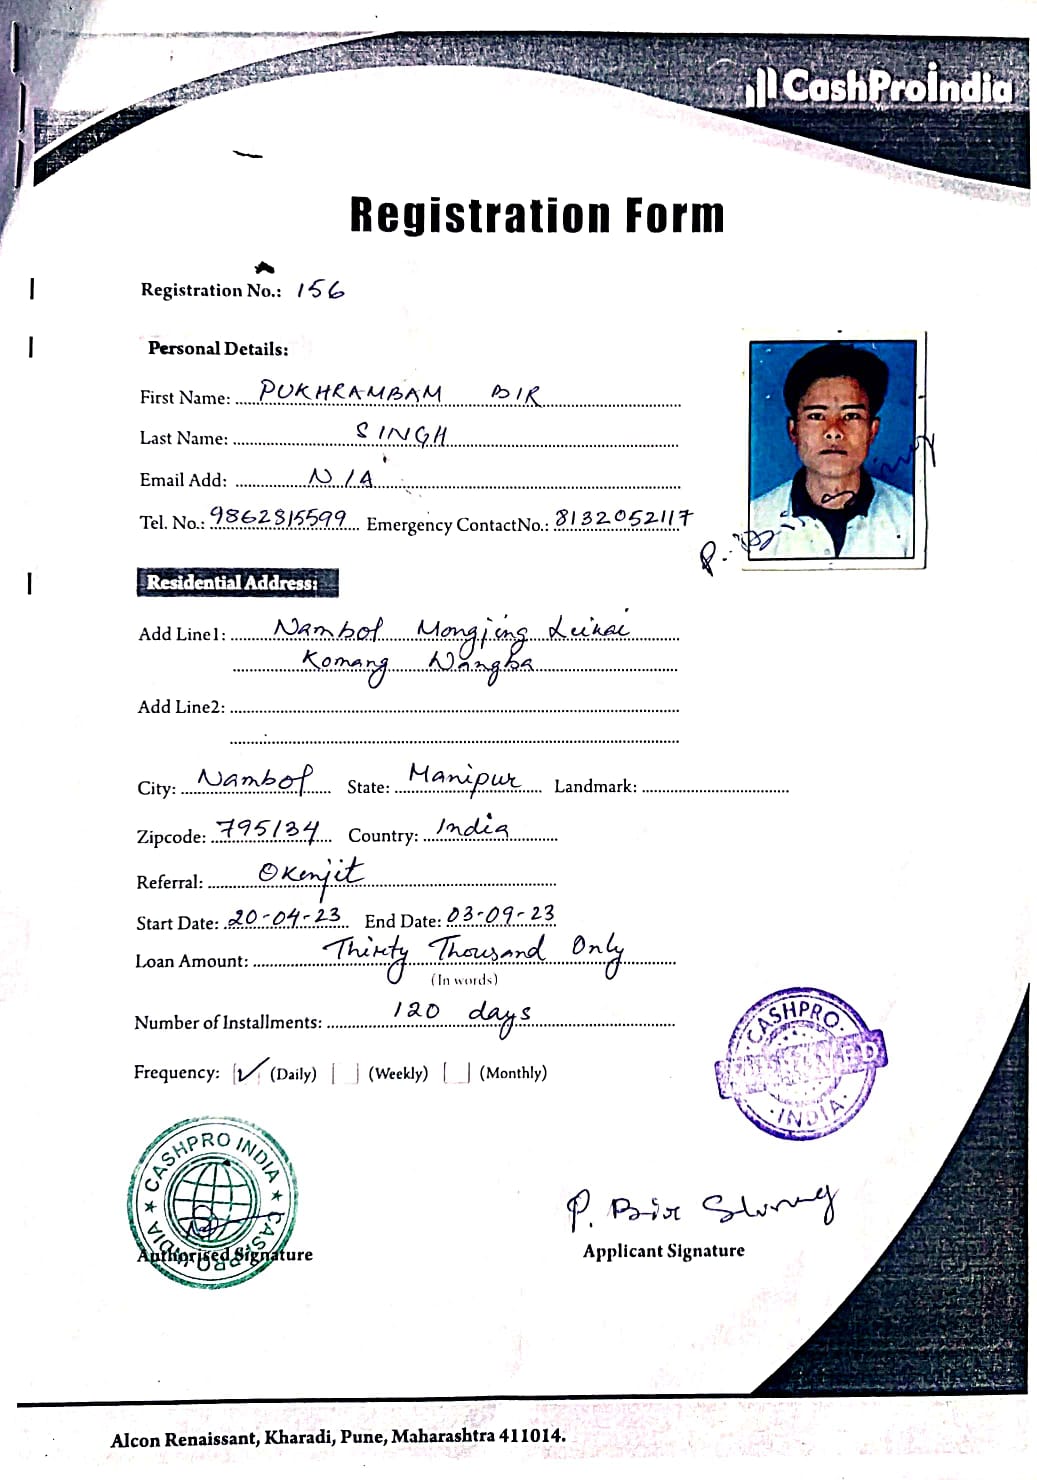 CashProIndia
Registration Form
Registration No.: 156
Personal Details:
First Name: PUKHRAMBAM BIR
Last Name: SINGH
Email Add: N/A
Tel. No.: 9862815599 Emergency ContactNo.: 8132052117
P. Bir
Residential Address:
Add Line1: Nambol Mongjing Leikai
Komang Wangba
Add Line2:
City: Nambol State: Manipur Landmark:
Zipcode: 795134 Country: India
Referral: Okenjit
Start Date: 20-04-23 End Date: 03-09-23
Loan Amount: Thirty Thousand Only
(In words)
Number of Installments: 120 days
Frequency: (Daily) (Weekly) (Monthly)
CASHPRO
INDIA
CASHPRO INDIA
CASHPRO INDIA
P. Bir
Authorised Signature Applicant Signature
Alcon Renaissant, Kharadi, Pune, Maharashtra 411014.